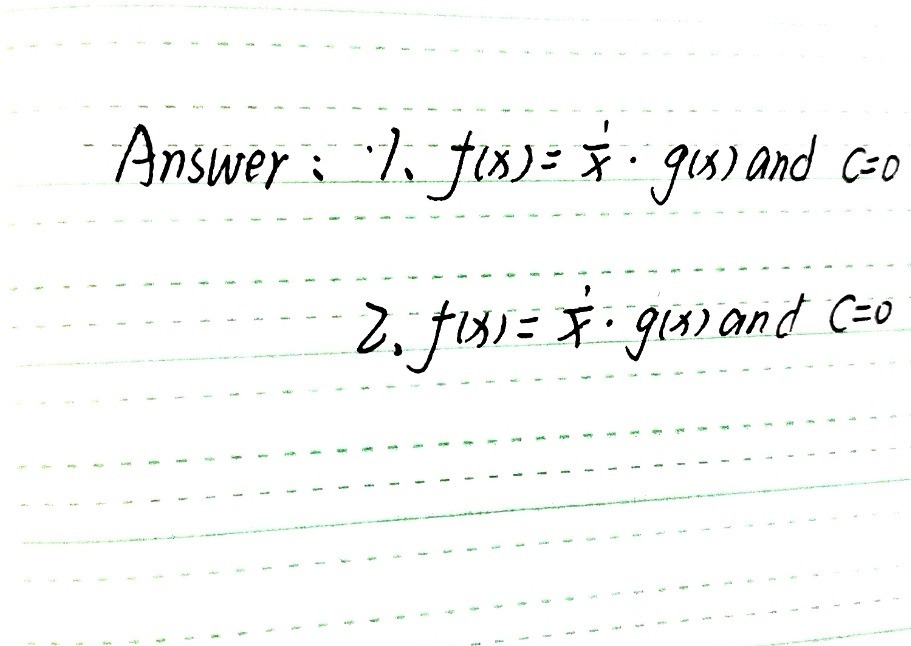 Answer: 1、f(x)=1/x · g(x) and C=0
2、f(x)=1/x · g(x) and C=0